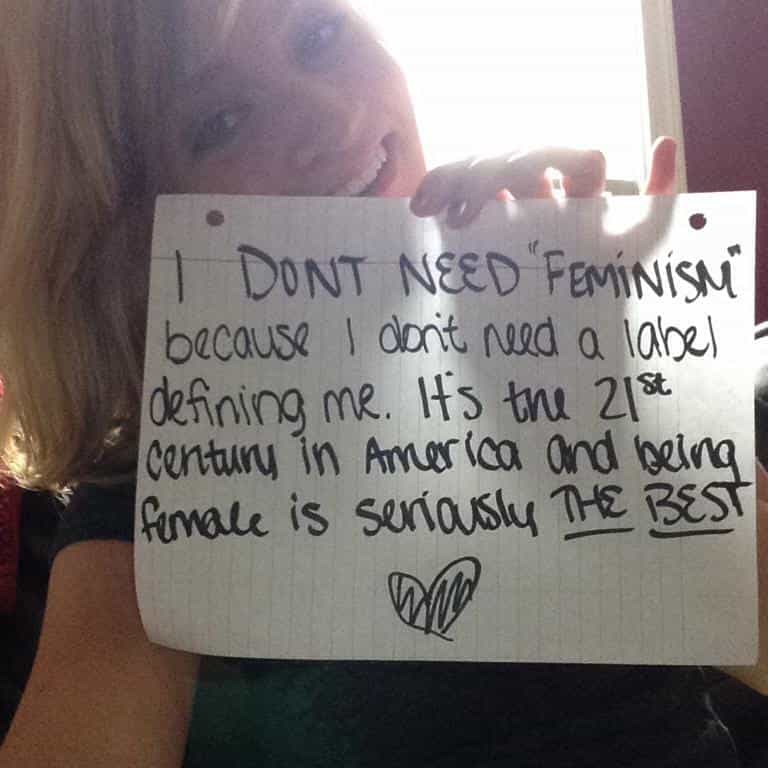 I DONT NEED "FEMINISM"
because I don't need a label
defining me. It's the 21st
century in America and being
female is seriously THE BEST